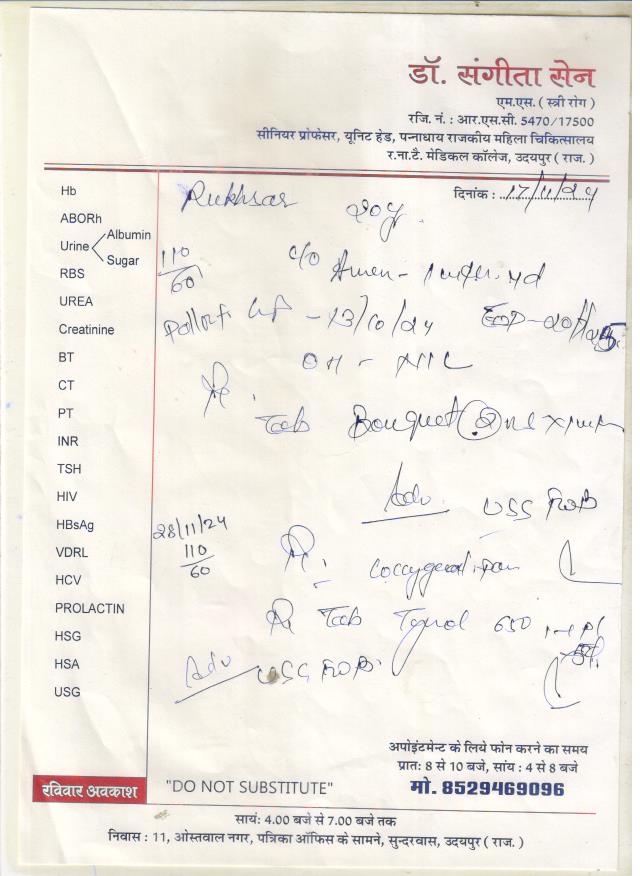 डॉ. संगीता सेन
एम.एस. ( स्त्री रोग )
रजि. नं. : आर.एस.सी. 5470/17500
सीनियर प्रोफेसर, यूनिट हेड, पन्नाधाय राजकीय महिला चिकित्सालय
र.ना.टै. मेडिकल कॉलेज, उदयपुर ( राज. )
दिनांक : 17/11/24
Rukhsar 20y.
Hb
ABORh
Urine Albumin
Sugar
RBS
UREA
Creatinine
BT
CT
PT
INR
TSH
HIV
HBsAg
VDRL
HCV
PROLACTIN
HSG
HSA
USG
110/60
c/o Amen -
LMP - 13/10/24 EDD - 20/7/25
OH - NIL
Tab Bouquet
Adv. USG FOB
28/11/24
110/60
Rx
Rx Tab 650
Adv USG FOB.
अपोइंटमेण्ट के लिये फोन करने का समय
प्रात: 8 से 10 बजे, सांय : 4 से 8 बजे
मो. 8529469096
रविवार अवकाश
"DO NOT SUBSTITUTE"
सायं: 4.00 बजे से 7.00 बजे तक
निवास : 11, ओस्तवाल नगर, पत्रिका ऑफिस के सामने, सुन्दरवास, उदयपुर ( राज. )